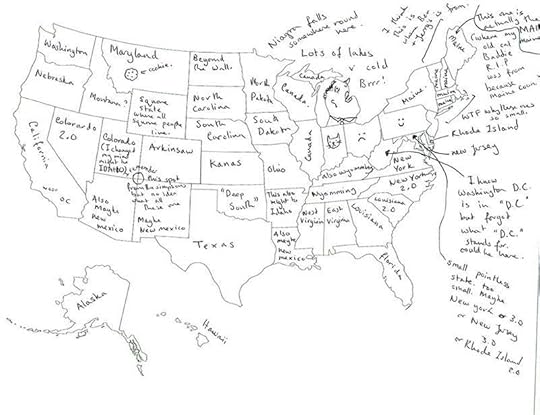 Washington
Nebraska
California
West
O.C
Maryland
← cookie.
Montana?
Square
state
where all
square people
live.
Beyond
The Wall.
North
Carolina
South
Carolina
Kanas
North
Dakota
South
Dakota
Ohio
Colorardo
2.0
Colorado
(I changed
my mind
might be
IDAHO)
Arkinsaw
this spot
from the simpsons
but no idea
what all
these one
Also
Maybe
new
mexico
Maybe
New mexico
"Deep
South"
Texas
This also
might be
Idaho
Also
maybe
new
mexico
Niagra falls
somewhere round
here.
Lots of lakes
+ cold
Brrr!
Canada
Canada.
Canada
Also wyoming
Wyomming
West
Virginia
East
Virginia
Louisiana
Louisiana
2.0
New
York
New York
2.0
Florida
Maine.
Maine
maine
maine
maine
maine
I think
this is where
Ben +
Jerry's is from.
This one is
actually the
MAIN
maine
(where my
old cat
Baddie
R.I.P
was from
because
maine coon
WTF why
so small.
Rhode Island
new Jersey
I know
Washington D.C.
is in "D.C."
but forget
what "D.C."
stands for.
could be here.
small pointless
state. too
small. Maybe
New york 3.0
or New Jersey
3.0
or Rhode Island
2.0
Alaska
Hawaii